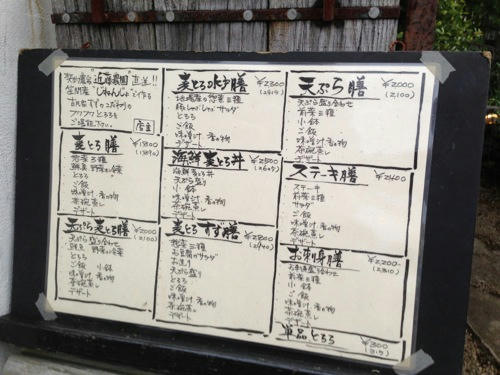 "近藤農園" 直送!!
笠間産 "じねんじょ" で作る
ご堪能下さい。
店主
麦とろ膳 ¥1800
惣菜3種
とろろ
ご飯
味噌汁 香の物
茶碗蒸し
デザート
天ぷら麦とろ膳 ¥2000
(2100)
天ぷら盛り合わせ
とろろ
ご飯 小鉢
味噌汁 香の物
茶碗蒸し
デザート
麦とろ水戸膳 ¥2300
(2415)
地場産の惣菜三種
豚しゃぶしゃぶサラダ
とろろ
ご飯
味噌汁 香の物
茶碗蒸し
デザート
海鮮麦とろ丼 ¥2500
海鮮麦とろ丼
天ぷら盛り
小鉢
味噌汁 香の物
茶碗蒸し
デザート
麦とろすず膳 ¥2800
(2940)
惣菜三種
お豆腐サラダ
お造り
天ぷら盛り
とろろ
ご飯
味噌汁 香の物
茶碗蒸し
デザート
天ぷら膳 ¥2000
(2,100)
天ぷら盛り合わせ
前菜三種
小鉢
ご飯
味噌汁 香の物
茶碗蒸し
デザート
ステーキ膳 ¥2400
ステーキ
前菜三種
サラダ
ご飯
味噌汁 香の物
茶碗蒸し
デザート
お刺身膳 ¥2200
(2,310)
お刺身盛り合わせ
前菜三種
小鉢
ご飯
味噌汁 香の物
茶碗蒸し
デザート
単品とろろ ¥300
(315)